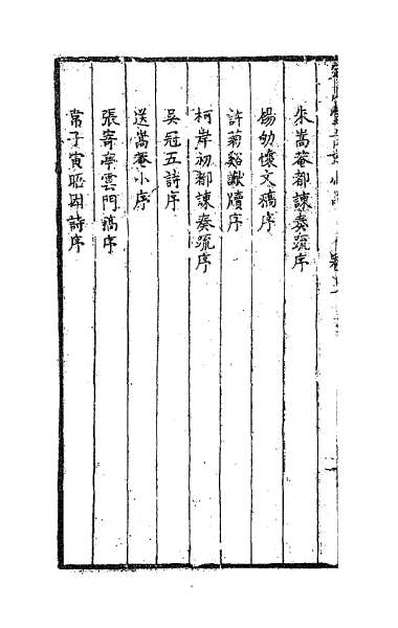 朱嵩菴都諫奏疏序
楊幼懷文稿序
許菊谿讞牘序
柯岸初都諫奏疏序
吳冠五詩序
送嵩菴小序
張寄亭雲門稿序
常子寅聯因詩序